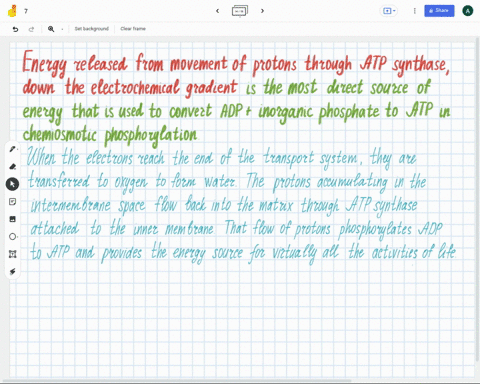 7
Share
A
Set background
Clear frame
Energy released from movement of protons through ATP synthase,
down the electrochemical gradient is the most direct source of
energy that is used to convert ADP + inorganic phosphate to ATP in
chemiosmotic phosphorylation
When the electrons reach the end of the transport system, they are
transferred to oxygen to form water. The protons accumulating in the
intermembrane space flow back into the matrix through ATP synthase
attached to the inner membrane. That flow of protons phosphorylates ADP
to ATP and provides the energy source for virtually all the activities of life